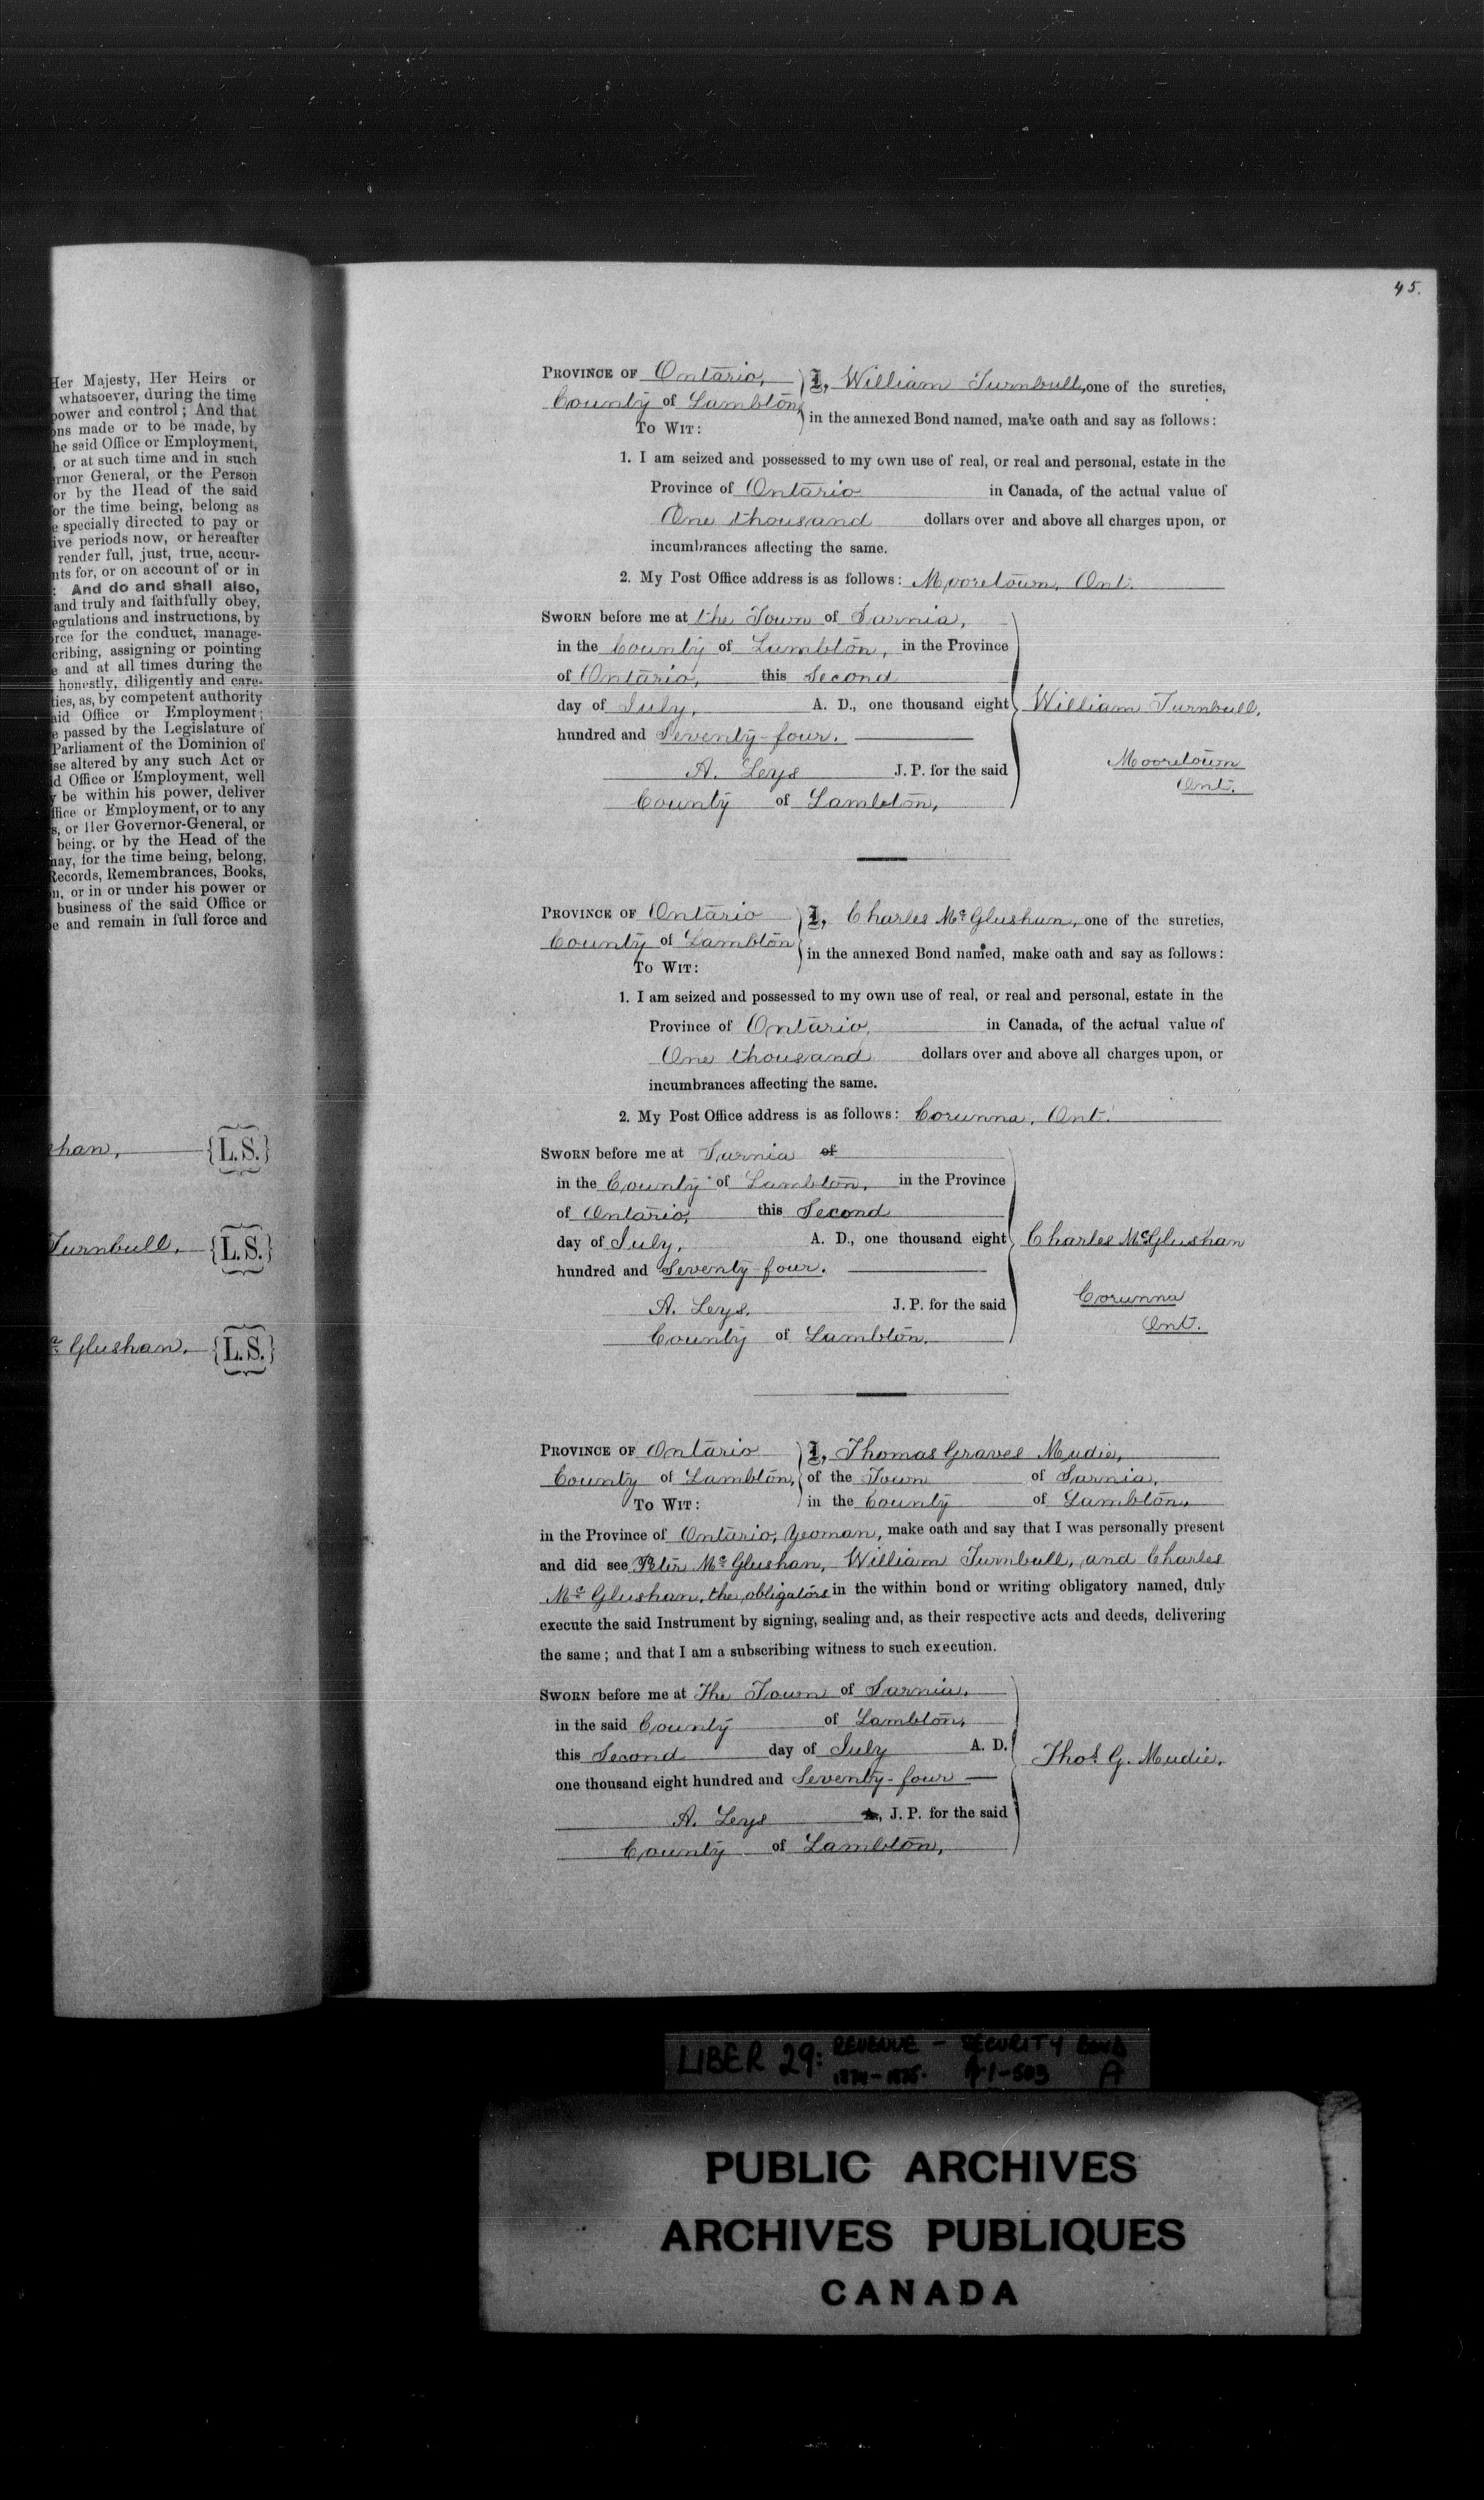 Her Majesty, Her Heirs or
whatsoever, during the time
power and control; And that
ons made or to be made, by
he said Office or Employment,
or at such time and in such
rnor General, or the Person
or by the Head of the said
or the time being, belong as
e specially directed to pay or
ive periods now, or hereafter
render full, just, true, accur-
nts for, or on account of or in
: And do and shall also,
and truly and faithfully obey,
egulations and instructions, by
rce for the conduct, manage-
cribing, assigning or pointing
e and at all times during the
honestly, diligently and care-
ties, as, by competent authority
aid Office or Employment;
e passed by the Legislature of
Parliament of the Dominion of
ise altered by any such Act or
id Office or Employment, well
y be within his power, deliver
ffice or Employment, or to any
s, or Her Governor-General, or
being, or by the Head of the
may, for the time being, belong,
Records, Remembrances, Books,
n, or in or under his power or
business of the said Office or
be and remain in full force and
shan, {L.S.}
Turnbull. {L.S.}
c Glushan. {L.S.}
45.
PROVINCE OF Ontario, I, William Turnbull, one of the sureties,
County of Lambton, in the annexed Bond named, make oath and say as follows:
TO WIT:
1. I am seized and possessed to my own use of real, or real and personal, estate in the
Province of Ontario in Canada, of the actual value of
One thousand dollars over and above all charges upon, or
incumbrances affecting the same.
2. My Post Office address is as follows: Mooretown, Ont.
SWORN before me at the Town of Sarnia,
in the County of Lambton, in the Province
of Ontario, this Second
day of July, A. D., one thousand eight William Turnbull,
hundred and Seventy-four.
Mooretown
A. Leys J. P. for the said
Ont.
County of Lambton,
PROVINCE OF Ontario I, Charles Mc Glushan, one of the sureties,
County of Lambton in the annexed Bond named, make oath and say as follows:
TO WIT:
1. I am seized and possessed to my own use of real, or real and personal, estate in the
Province of Ontario, in Canada, of the actual value of
One thousand dollars over and above all charges upon, or
incumbrances affecting the same.
2. My Post Office address is as follows: Corunna, Ont.
SWORN before me at Sarnia of
in the County of Lambton, in the Province
of Ontario, this Second
day of July, A. D., one thousand eight Charles McGlushan
hundred and Seventy-four.
Corunna
A. Leys. J. P. for the said
Ont.
County of Lambton.
PROVINCE OF Ontario I, Thomas Graves Mudie,
County of Lambton, of the Town of Sarnia,
TO WIT: in the County of Lambton,
in the Province of Ontario, Yeoman, make oath and say that I was personally present
and did see Peter Mc Glushan, William Turnbull, and Charles
Mc Glushan, the obligators in the within bond or writing obligatory named, duly
execute the said Instrument by signing, sealing and, as their respective acts and deeds, delivering
the same; and that I am a subscribing witness to such execution.
SWORN before me at The Town of Sarnia,
in the said County of Lambton,
this Second day of July A. D. Thos. G. Mudie.
one thousand eight hundred and Seventy-four
A. Leys J. P. for the said
County of Lambton,
LIBER 29: REVENUE - SECURITY BOND
1874-1875. 1-503 A
PUBLIC ARCHIVES
ARCHIVES PUBLIQUES
CANADA